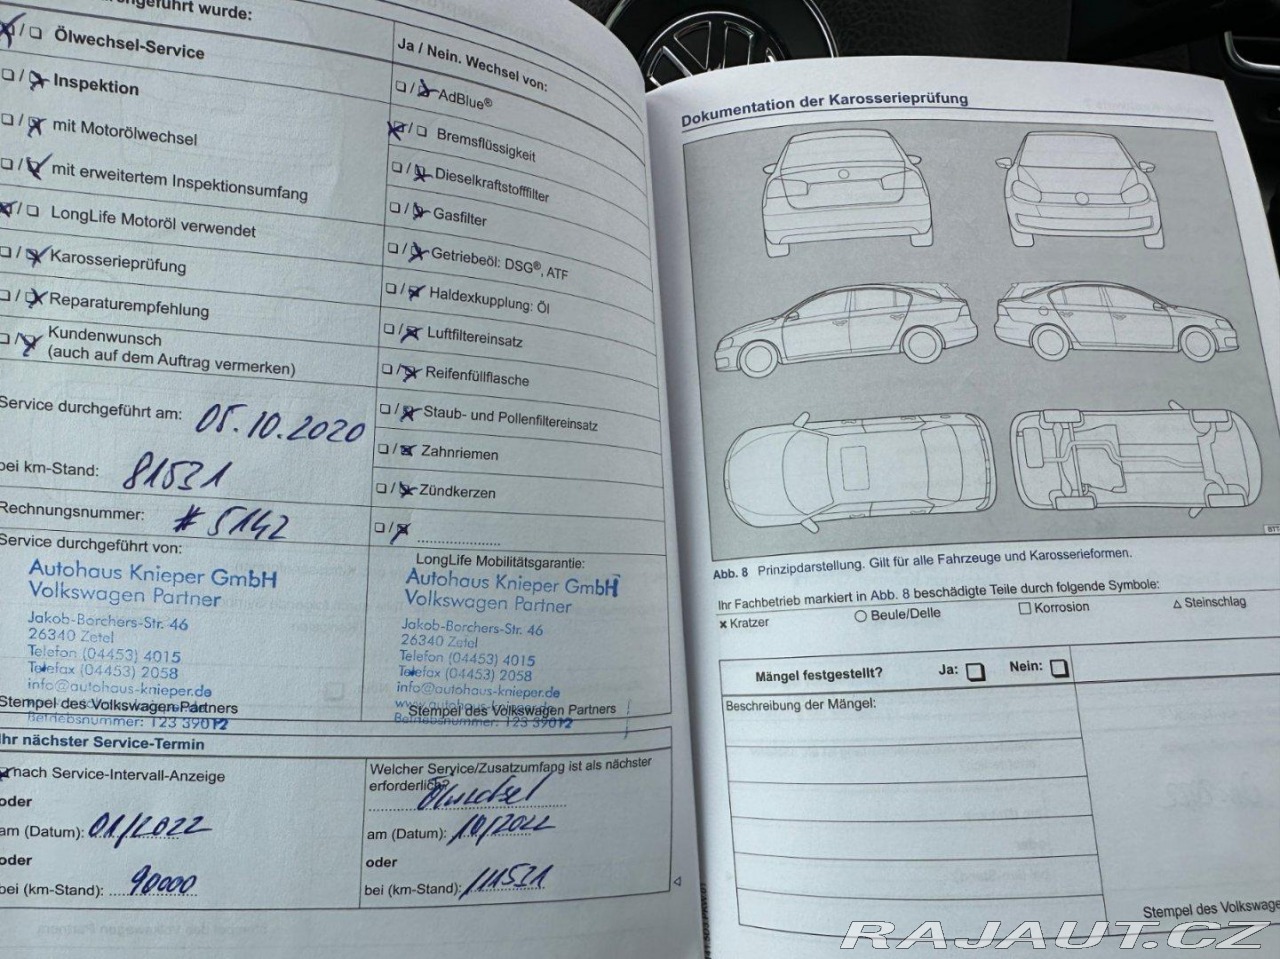 durchgeführt wurde:
Ölwechsel-Service
Inspektion
mit Motorölwechsel
mit erweitertem Inspektionsumfang
LongLife Motoröl verwendet
Karosserieprüfung
Reparaturempfehlung
Kundenwunsch
(auch auf dem Auftrag vermerken)
Service durchgeführt am: 05.10.2020
bei km-Stand: 81531
Rechnungsnummer: # 5142
Service durchgeführt von:
Autohaus Knieper GmbH
Volkswagen Partner
Jakob-Borchers-Str. 46
26340 Zetel
Telefon (04453) 4015
Telefax (04453) 2058
info@autohaus-knieper.de
Stempel des Volkswagen Partners
Betriebsnummer: 123 39012
Ja / Nein. Wechsel von:
AdBlue®
Bremsflüssigkeit
Dieselkraftstofffilter
Gasfilter
Getriebeöl: DSG®, ATF
Haldexkupplung: Öl
Luftfiltereinsatz
Reifenfüllflasche
Staub- und Pollenfiltereinsatz
Zahnriemen
Zündkerzen
LongLife Mobilitätsgarantie:
Autohaus Knieper GmbH
Volkswagen Partner
Jakob-Borchers-Str. 46
26340 Zetel
Telefon (04453) 4015
Telefax (04453) 2058
info@autohaus-knieper.de
www.autohaus-knieper.de
Stempel des Volkswagen Partners
Betriebsnummer: 123 39012
Ihr nächster Service-Termin
nach Service-Intervall-Anzeige
oder
am (Datum): 01/2022
oder
bei (km-Stand): 90000
Welcher Service/Zusatzumfang ist als nächster
erforderlich?
Ölwechsel
am (Datum): 10/2022
oder
bei (km-Stand): 111531
Dokumentation der Karosserieprüfung
Abb. 8 Prinzipdarstellung. Gilt für alle Fahrzeuge und Karosserieformen.
Ihr Fachbetrieb markiert in Abb. 8 beschädigte Teile durch folgende Symbole:
× Kratzer ○ Beule/Delle □ Korrosion △ Steinschlag
Mängel festgestellt? Ja: Nein:
Beschreibung der Mängel:
Stempel des Volkswage
RAJAUT.CZ